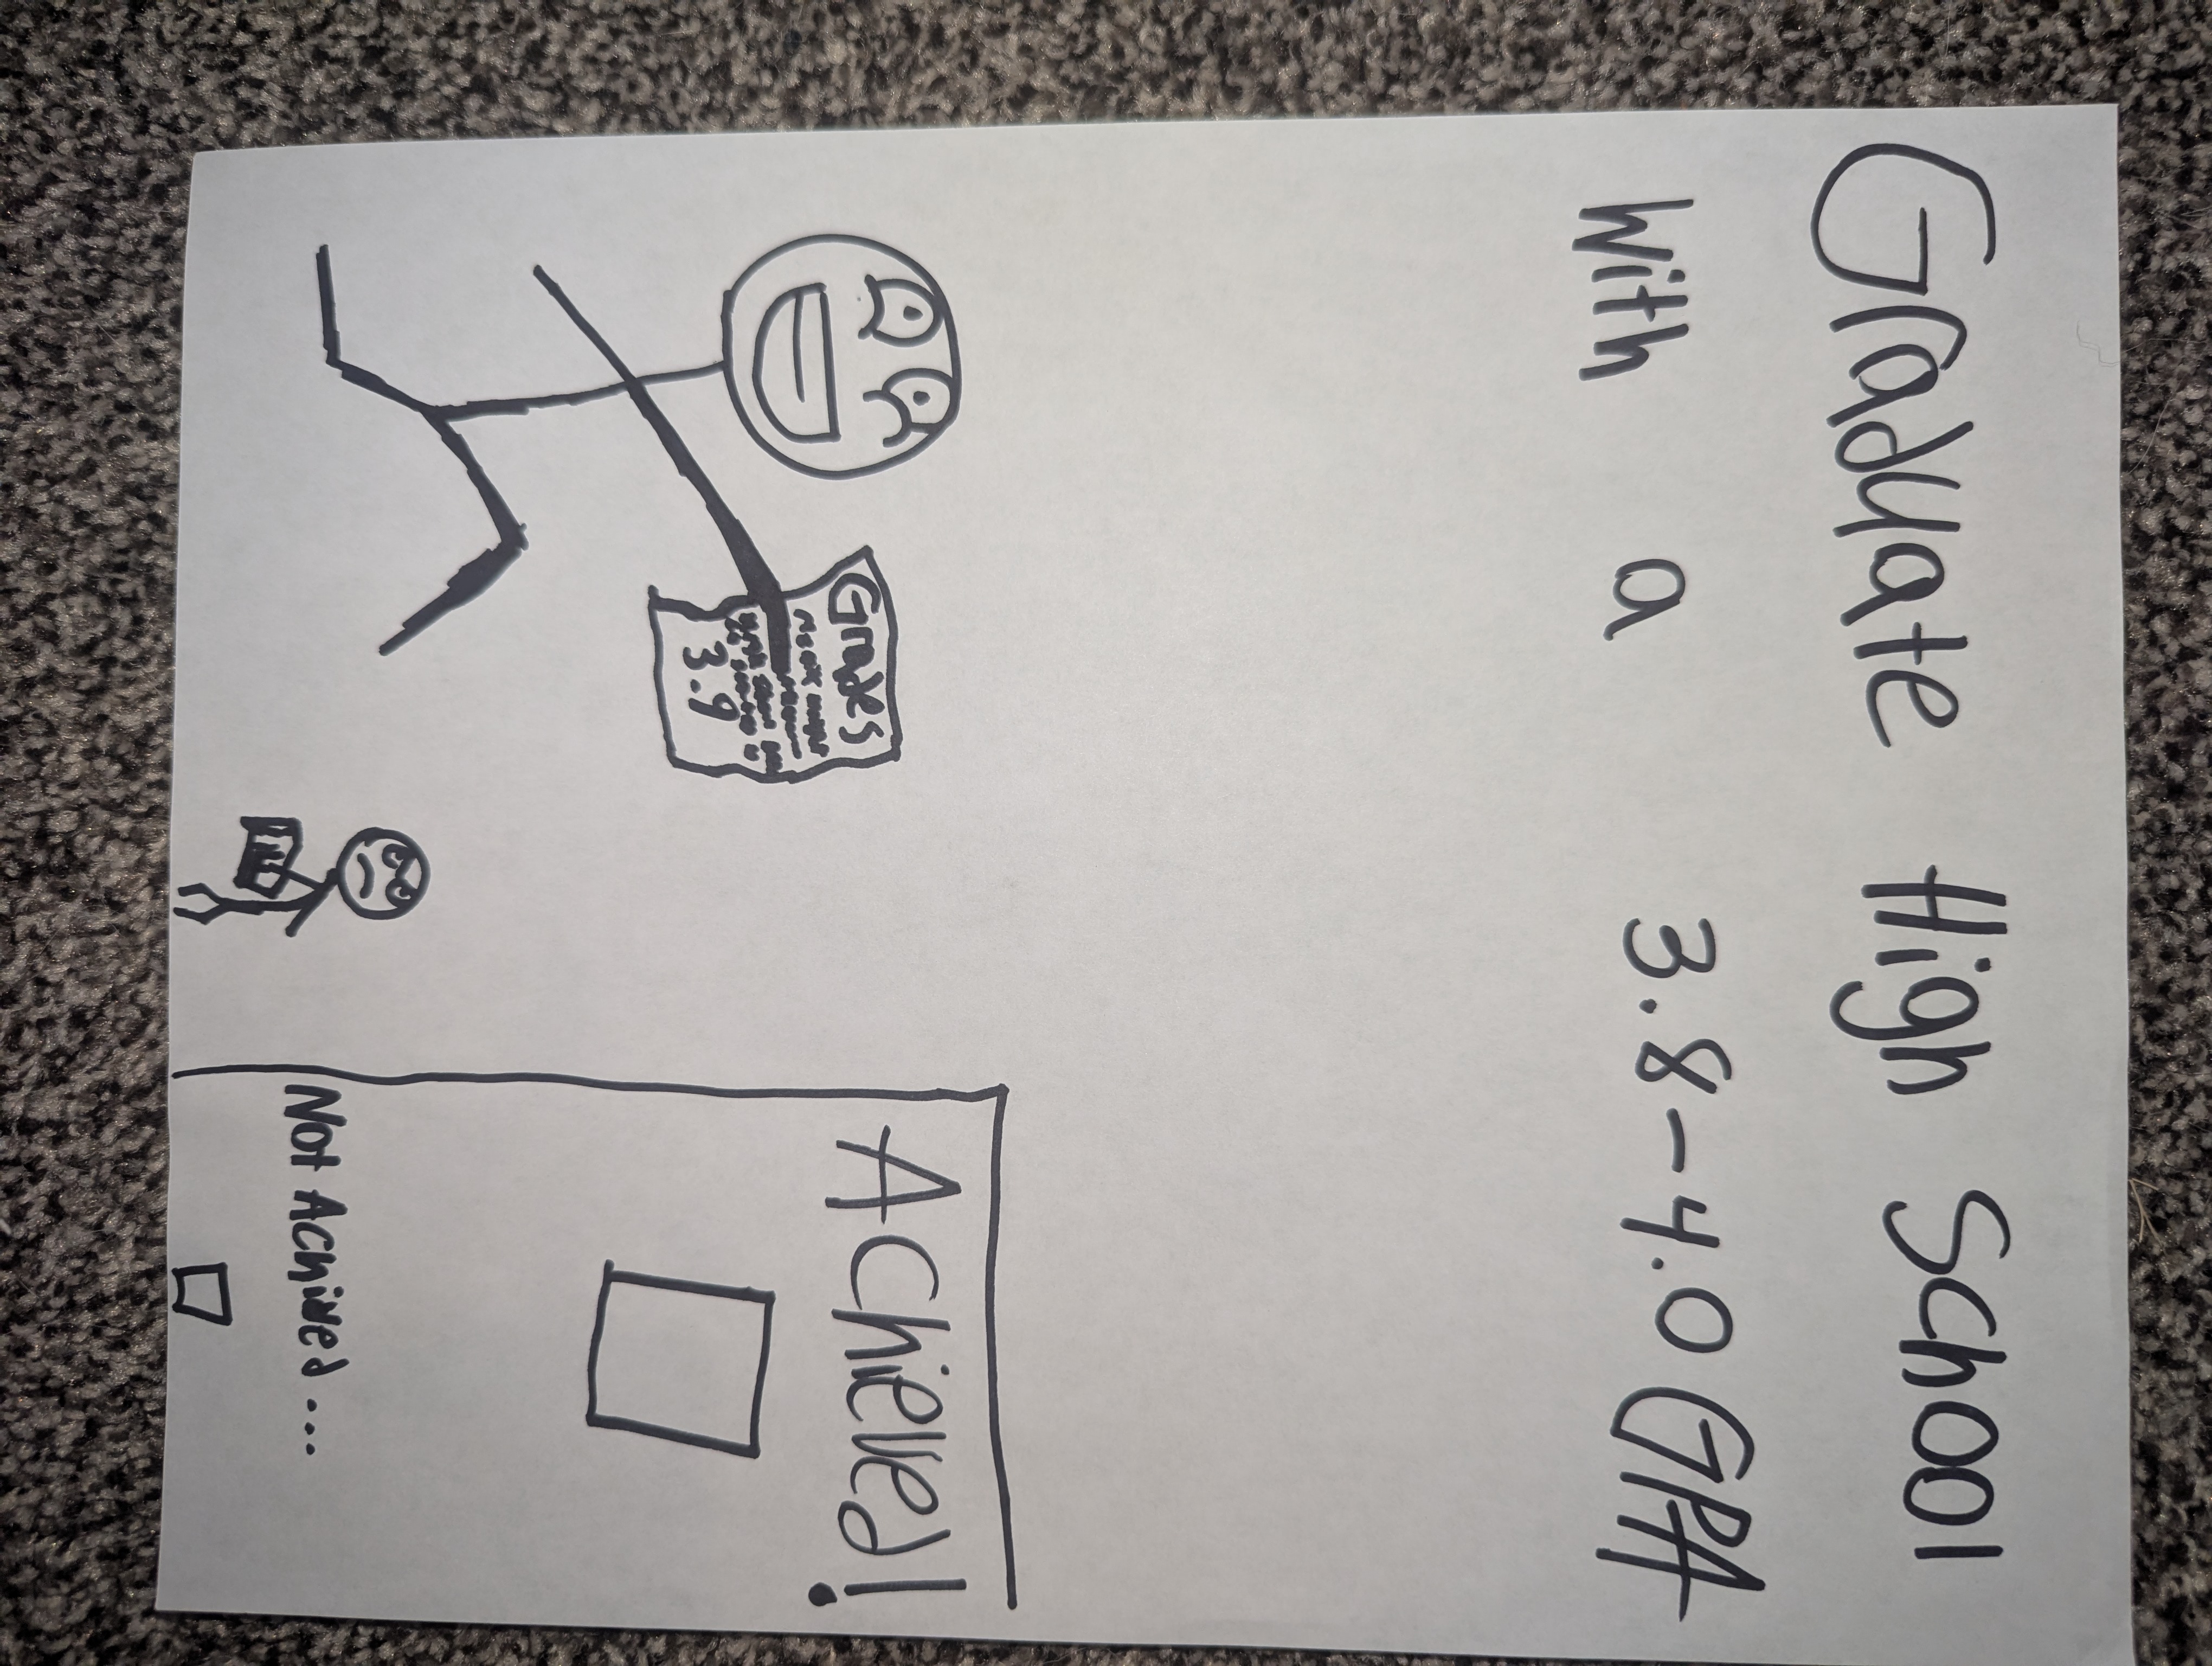 Graduate High School
with a 3.8-4.0 GPA
Grades
3.9
Achieved!
Not Achived...